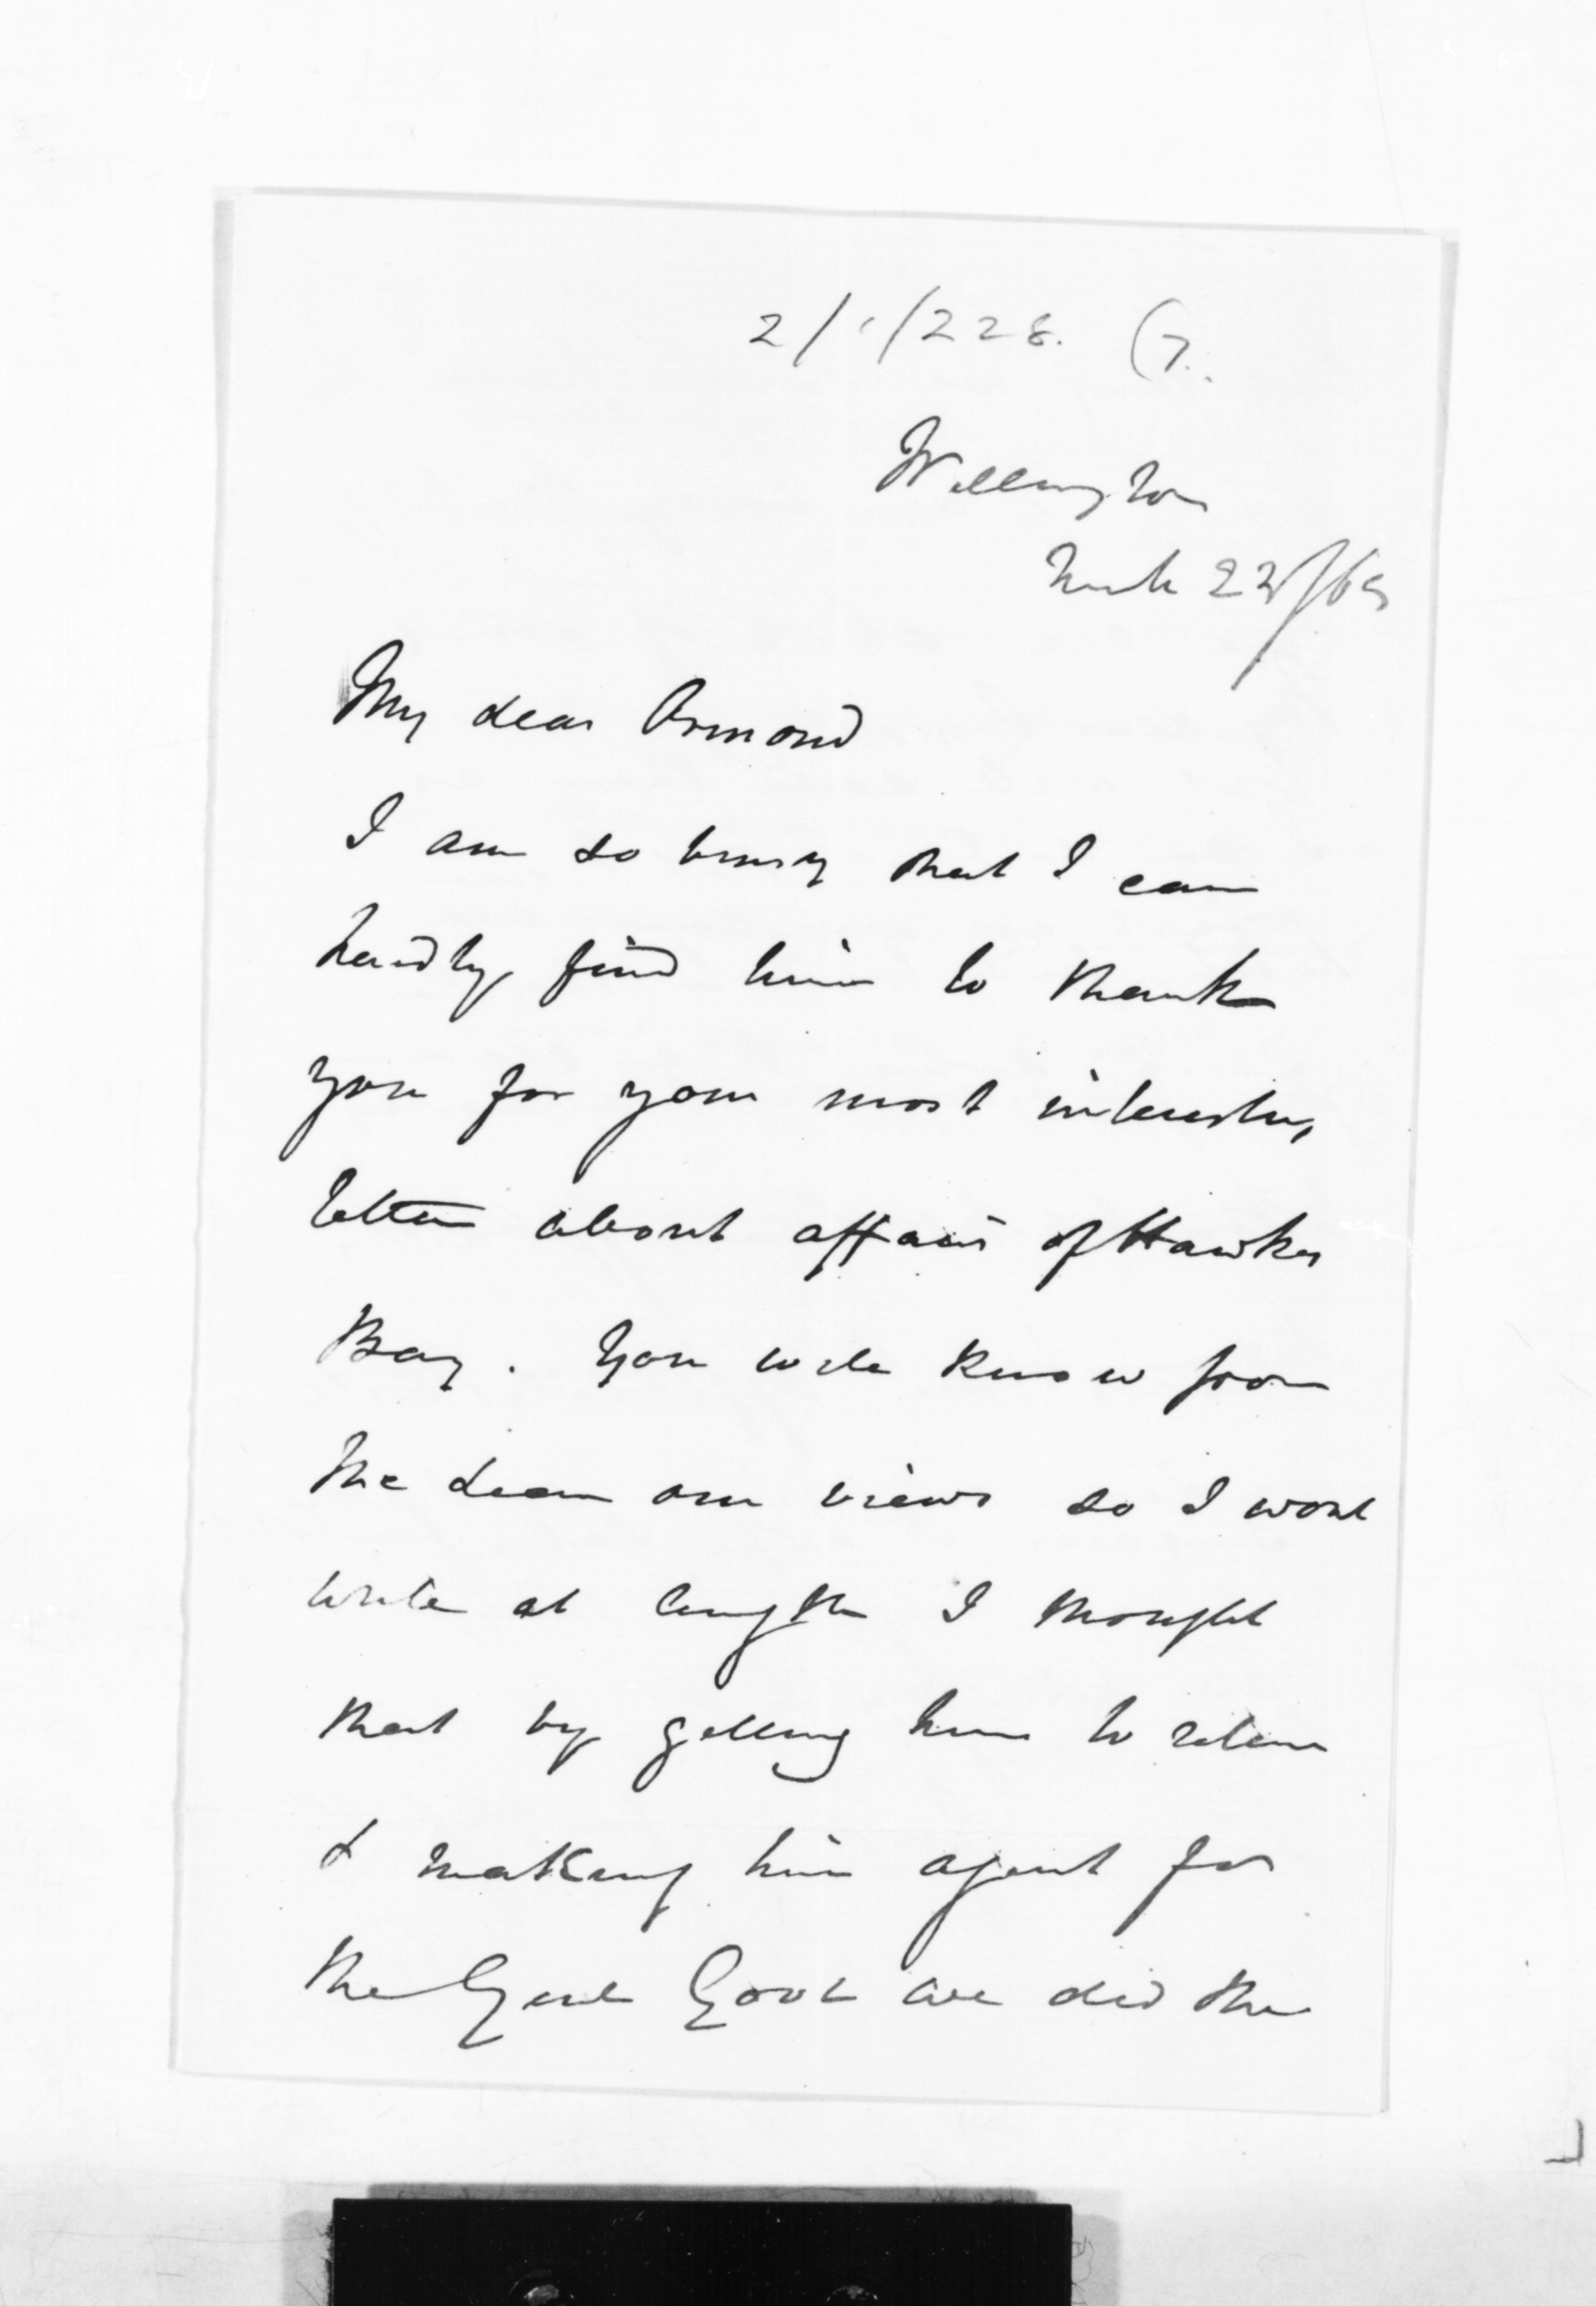 2/1/228. (7.
Wellington
March 22/65
My dear Ormond
I am so busy that I can
hardly find time to thank
you for your most interesting
letter about affairs of Hawkes
Bay. You will know from
the our views so I wont
write at length I thought
that by getting him to retire
& making him agent for
the Genl Govt we did the